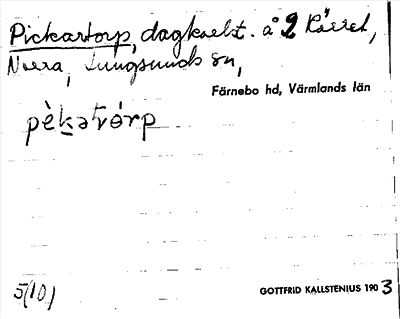 Pickartorp, dagkarlst. å 2 Kärret,
Nerra, Lungsunds sn,
Färnebo hd, Värmlands län
pèkatórp
5/10)
GOTTFRID KALLSTENIUS 1903